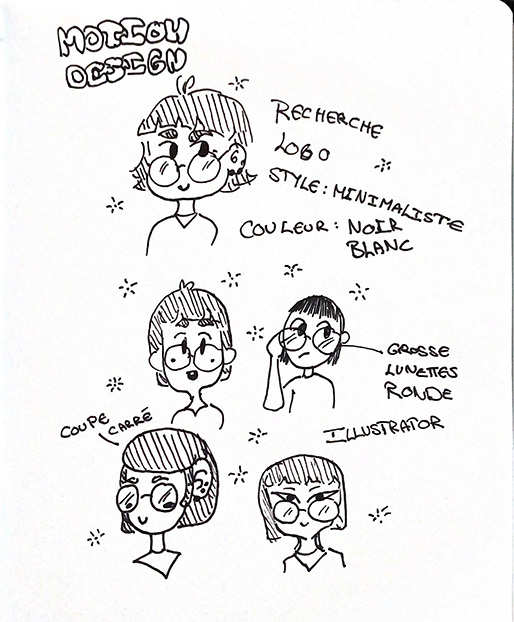 MOTION
DESIGN
RECHERCHE
LOGO
STYLE: MINIMALISTE
COULEUR: NOIR
BLANC
GROSSE
LUNETTES
RONDE
COUPE
CARRÉ
ILLUSTRATOR